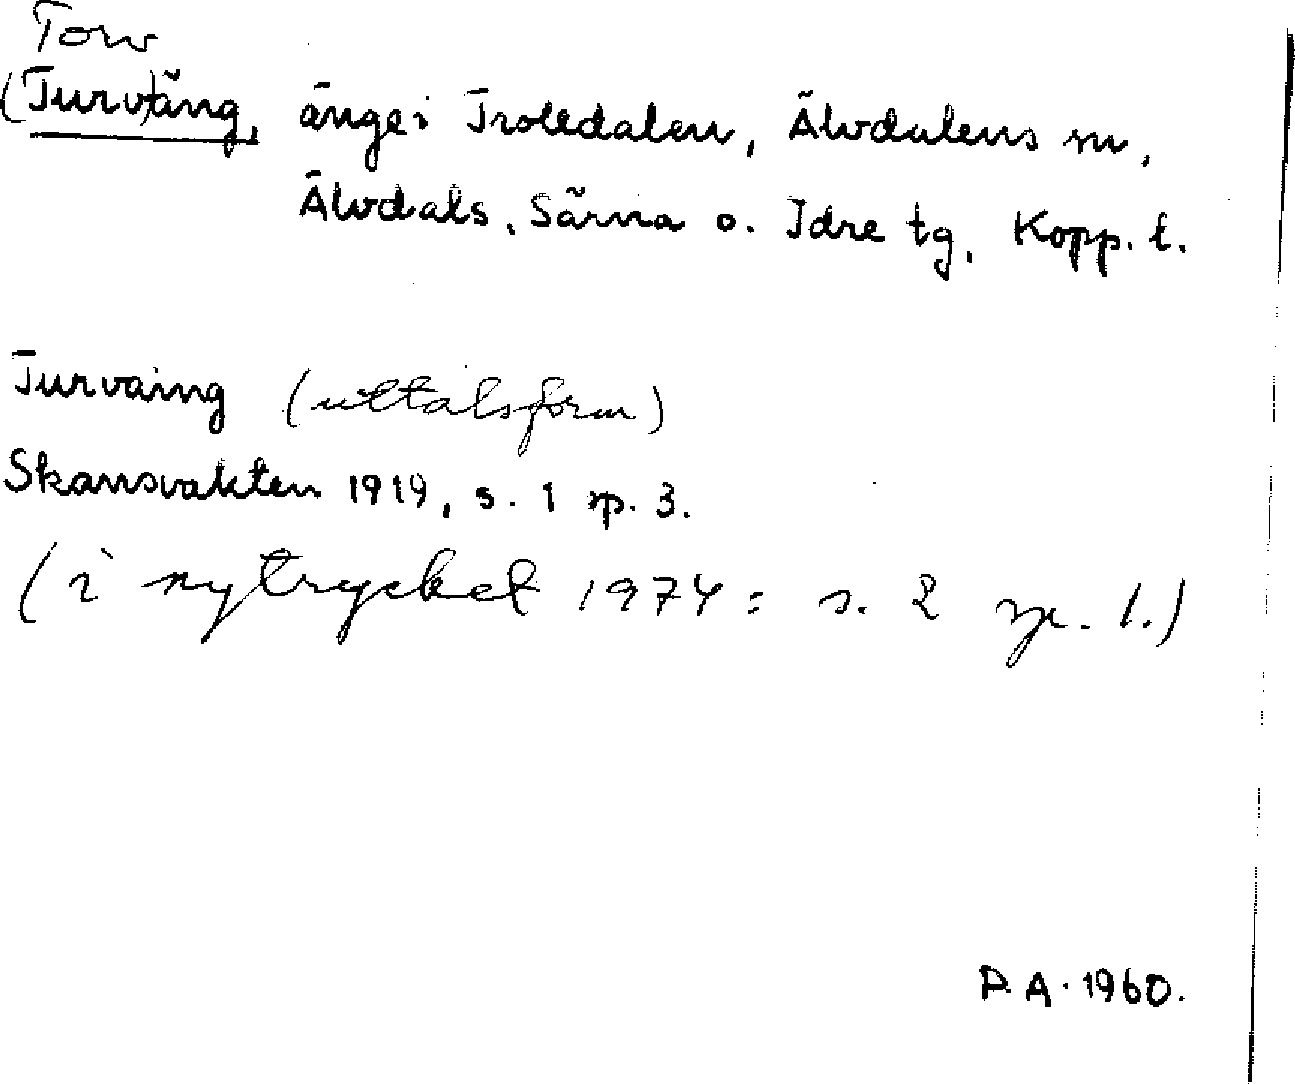 Torv
(Turv)äng, änge i Trolldalen, Älvdalens sn,
Älvdals, Särna o. Idre tg, Kopp. l.
Turvaing (uttalsform)
Skansvakten 1919, s. 1 sp. 3.
(i nytrycket 1974: s. 2 sp. 1.)
D. A. 1960.